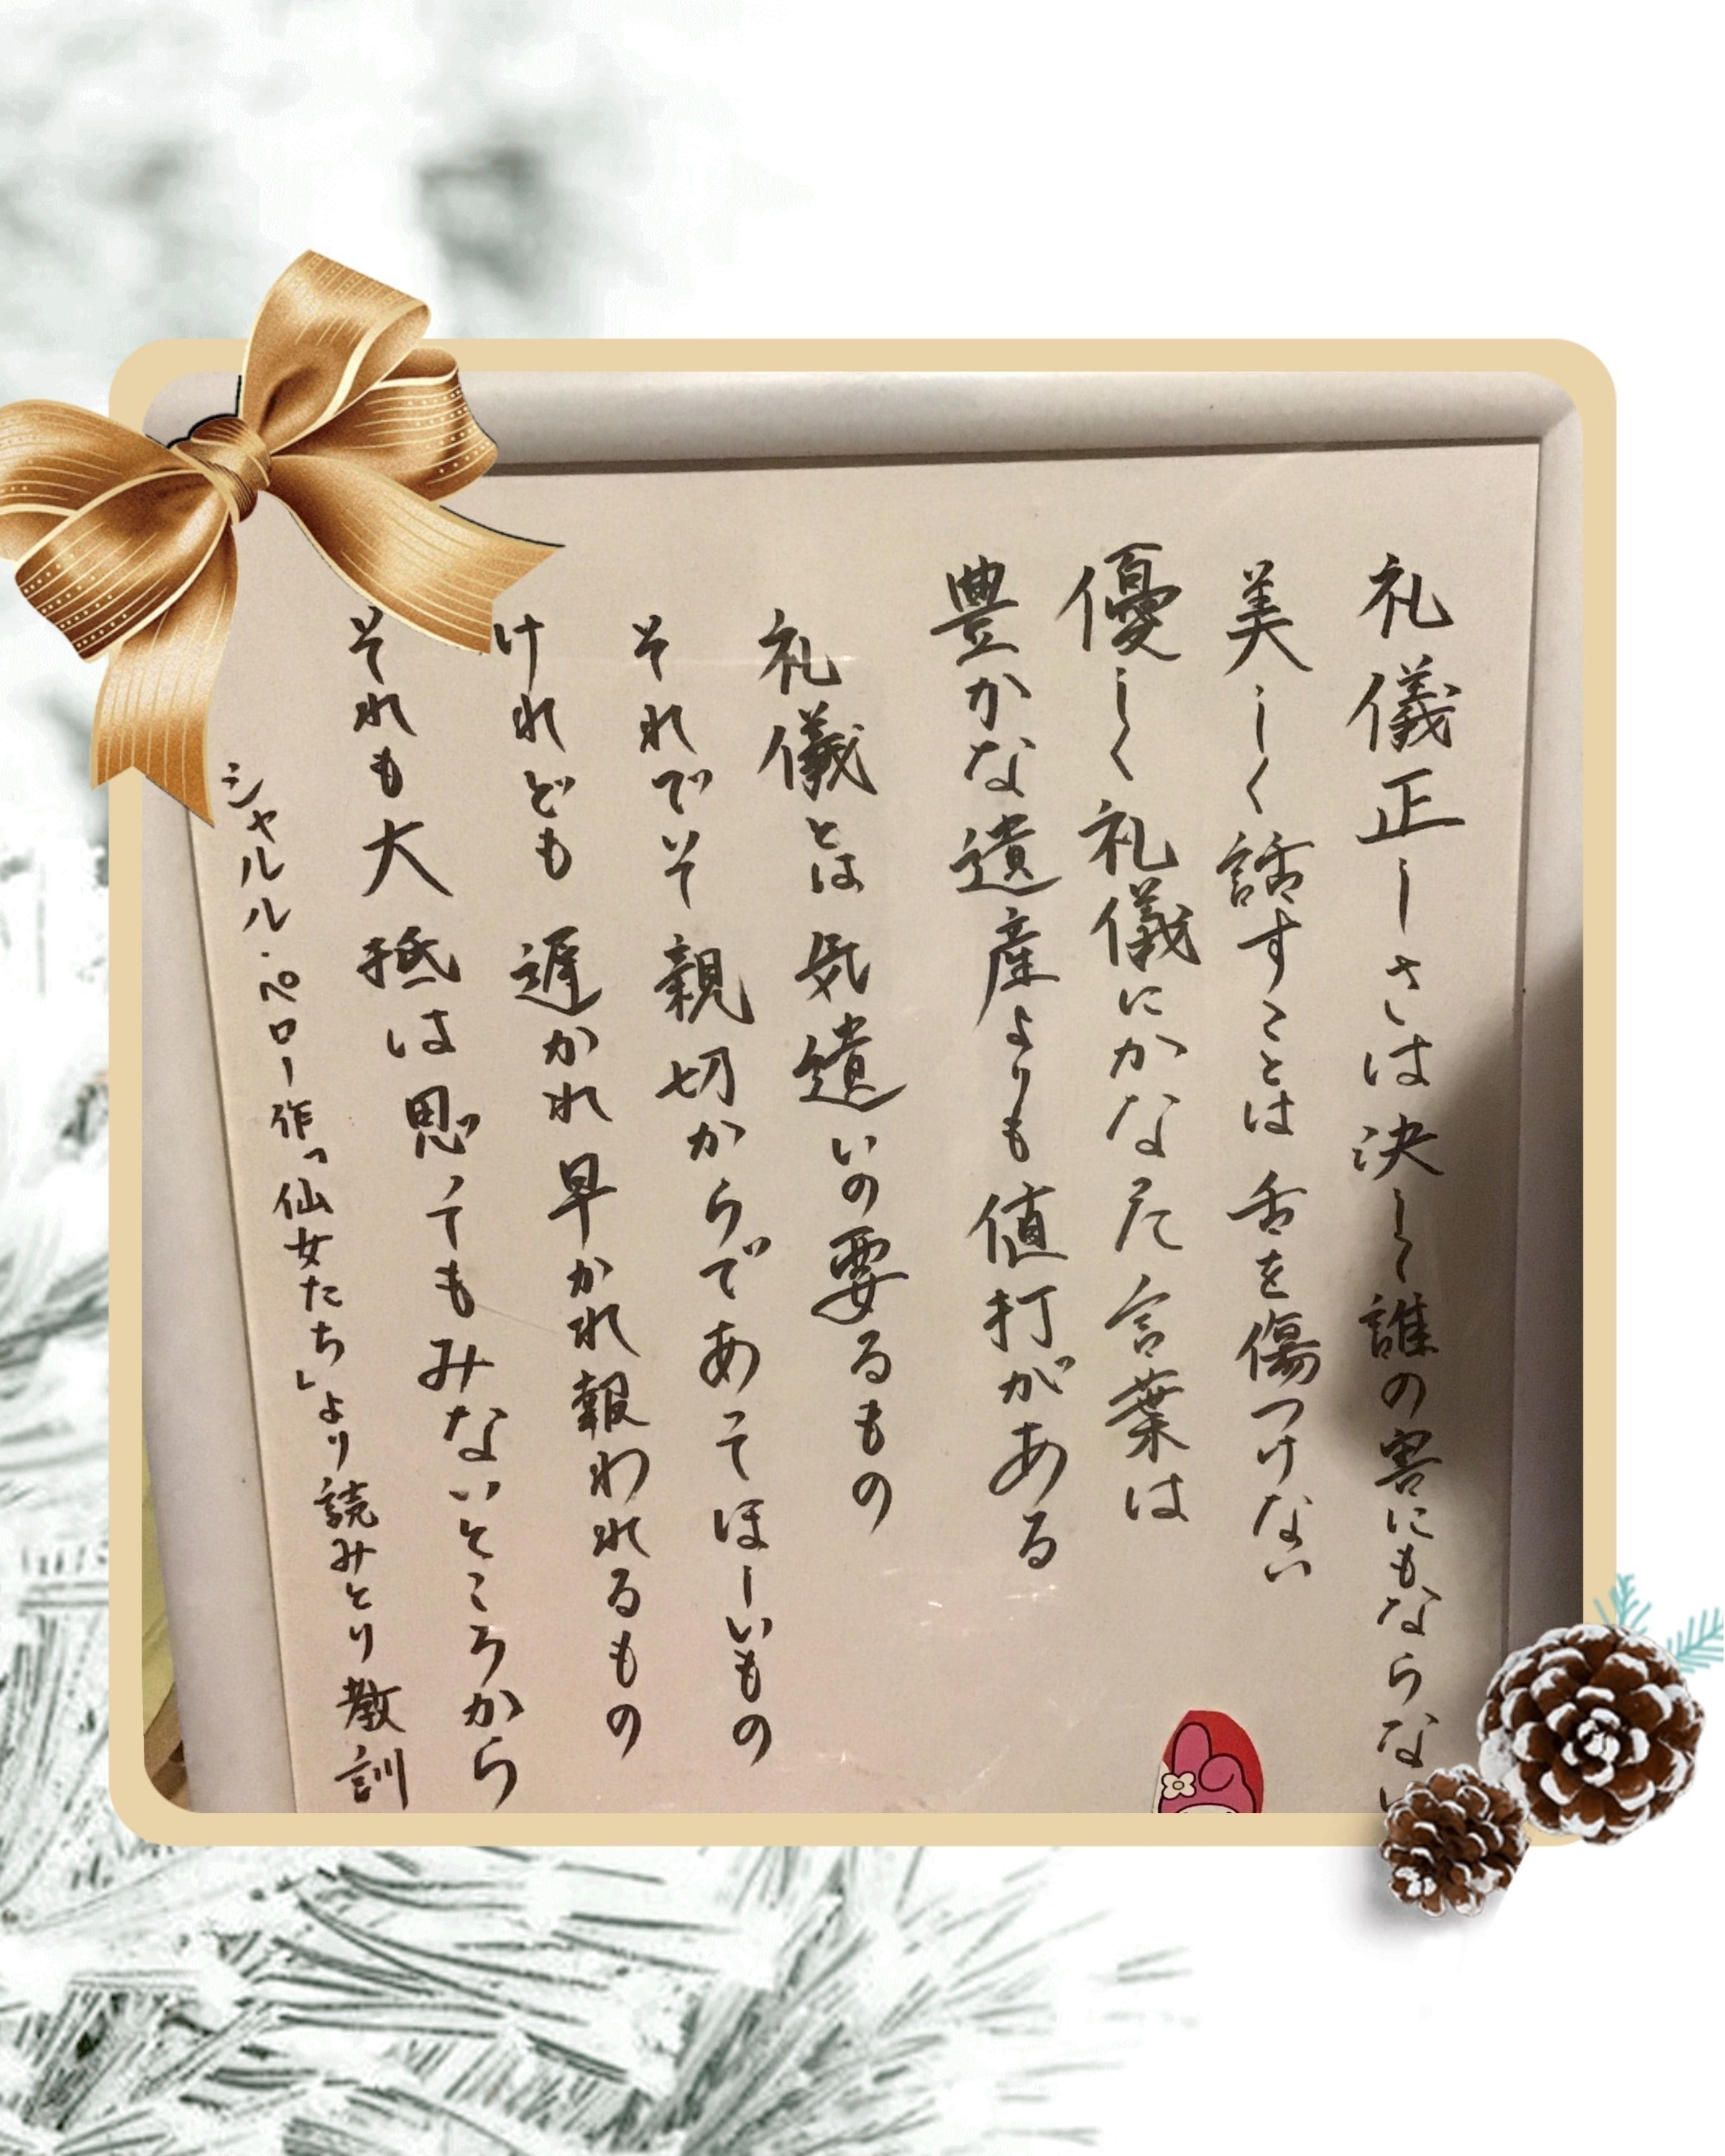 礼儀正しさは決して誰の害にもならない
美しく話すことは舌を傷つけない
優しく礼儀にかなった言葉は
豊かな遺産よりも値打がある
礼儀とは気遣いの要るもの
それでそ親切からであってほしいもの
けれども遅かれ早かれ報われるもの
それも大抵は思ってもみないところから
シャルル・ペロー作「仙女たち」より読みとり教訓